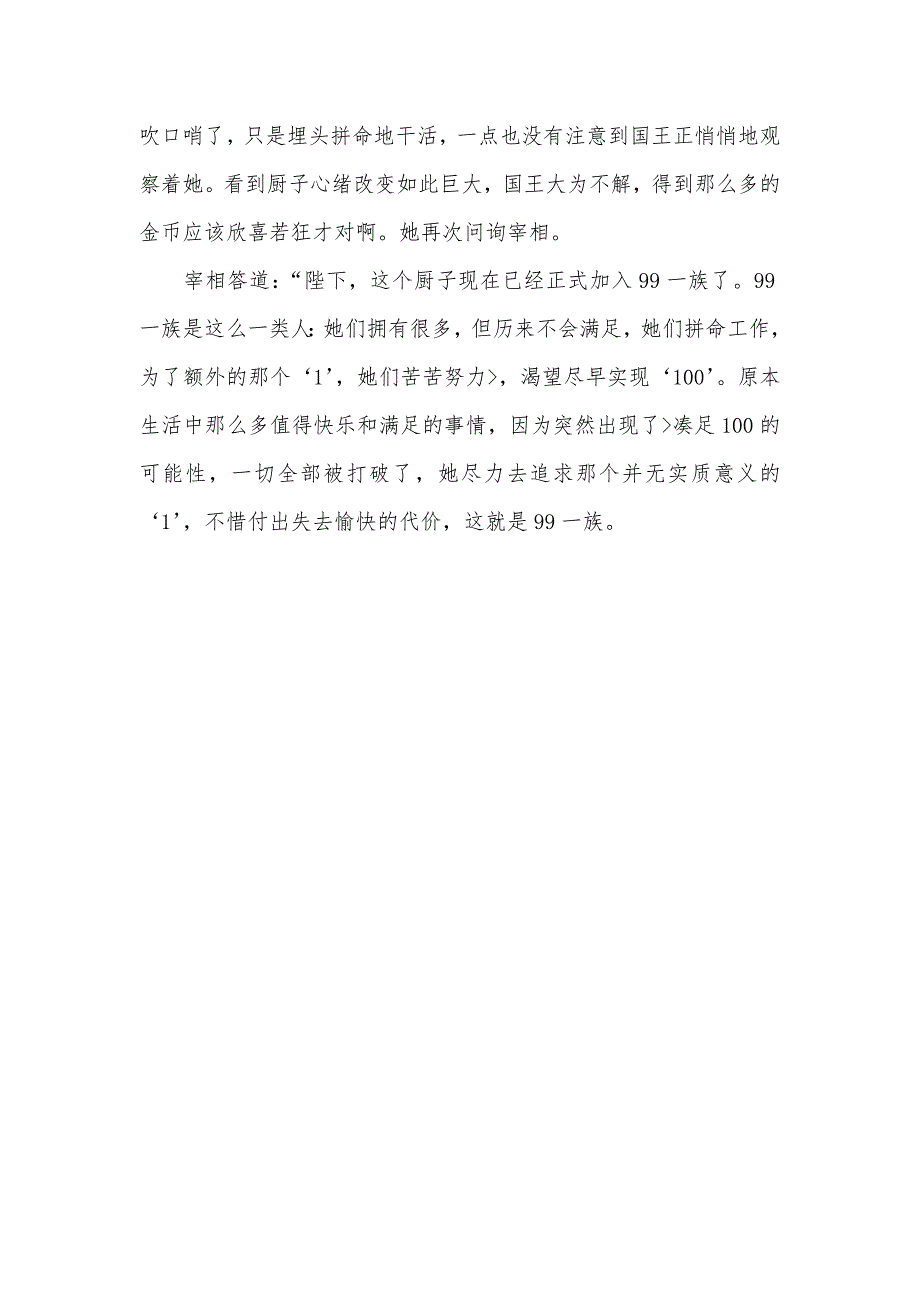 吹口哨了，只是埋头拼命地干活，一点也没有注意到国王正悄悄地观
察着她。看到厨子心绪改变如此巨大，国王大为不解，得到那么多的
金币应该欣喜若狂才对啊。她再次问询宰相。
宰相答道：“陛下，这个厨子现在已经正式加入 99 一族了。99
一族是这么一类人：她们拥有很多，但历来不会满足，她们拼命工作，
为了额外的那个‘1’，她们苦苦努力>，渴望尽早实现‘100’。原本
生活中那么多值得快乐和满足的事情，因为突然出现了>凑足 100 的
可能性，一切全部被打破了，她尽力去追求那个并无实质意义的
‘1’，不惜付出失去愉快的代价，这就是 99 一族。